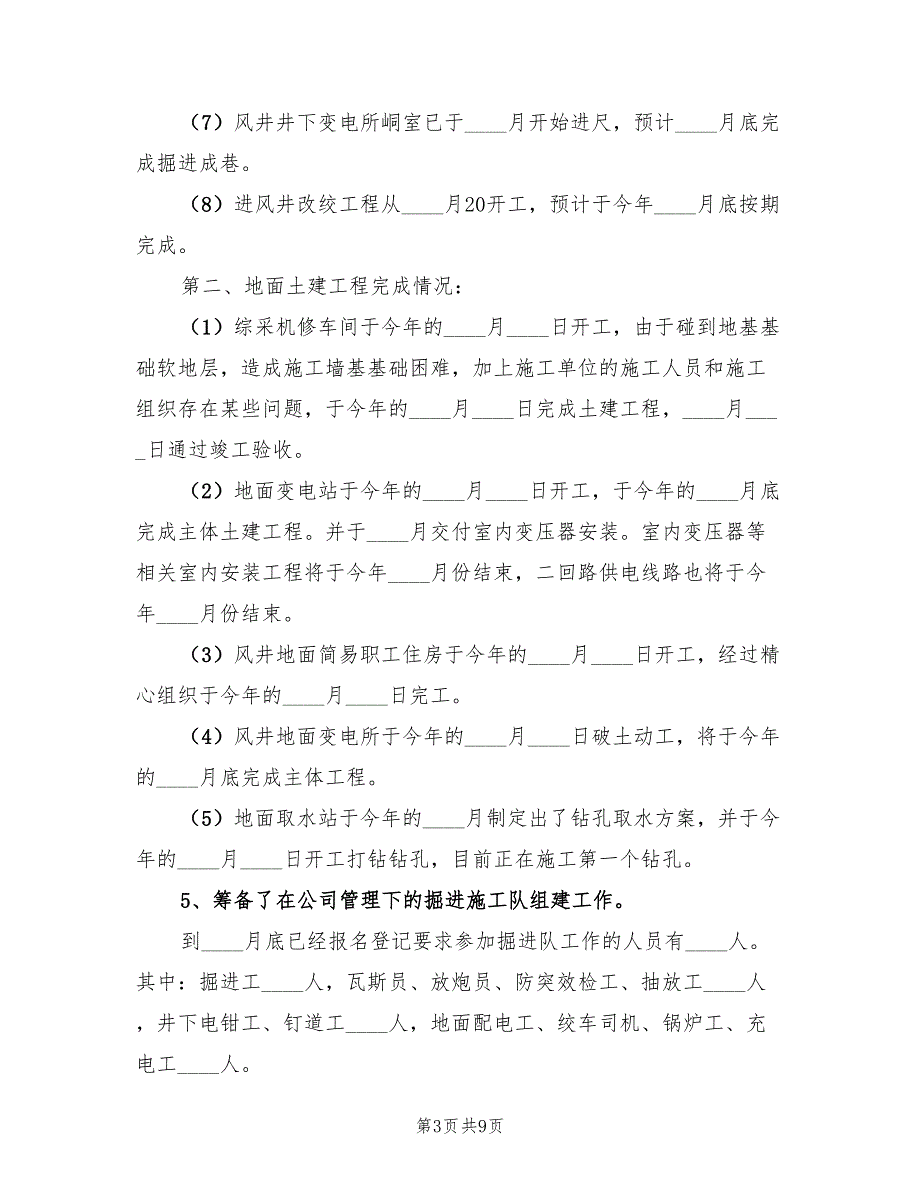 （7）风井井下变电所峒室已于____月开始进尺，预计____月底完
成掘进成巷。
（8）进风井改绞工程从____月20开工，预计于今年____月底按期
完成。
第二、地面土建工程完成情况：
（1）综采机修车间于今年的____月____日开工，由于碰到地基基
础软地层，造成施工墙基基础困难，加上施工单位的施工人员和施工
组织存在某些问题，于今年的____月____日完成土建工程，____月___
_日通过竣工验收。
（2）地面变电站于今年的____月____日开工，于今年的____月底
完成主体土建工程。并于____月交付室内变压器安装。室内变压器等
相关室内安装工程将于今年____月份结束，二回路供电线路也将于今
年____月份结束。
（3）风井地面简易职工住房于今年的____月____日开工，经过精
心组织于今年的____月____日完工。
（4）风井地面变电所于今年的____月____日破土动工，将于今年
的____月底完成主体工程。
（5）地面取水站于今年的____月制定出了钻孔取水方案，并于今
年的____月____日开工打钻钻孔，目前正在施工第一个钻孔。
5、筹备了在公司管理下的掘进施工队组建工作。
到____月底已经报名登记要求参加掘进队工作的人员有____人。
其中：掘进工____人，瓦斯员、放炮员、防突效检工、抽放工____人
，井下电钳工、钉道工____人，地面配电工、绞车司机、锅炉工、充
电工____人。
第3页 共9页